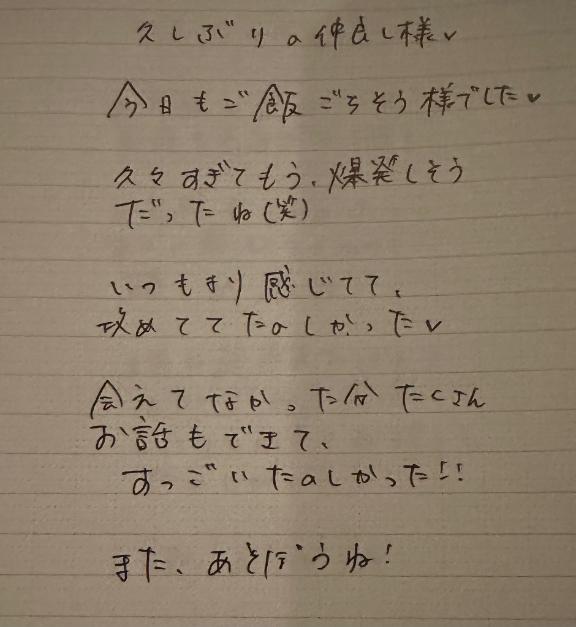 久しぶりの仲良し様♥
今日もご飯ごちそう様でした♥
久々すぎてもう、爆発しそう
だったね(笑)
いつもより感じてて、
攻めててたのしかった♥
会えてなかった分たくさん
お話もできて、
すっごいたのしかった!!
また、あそぼうね!